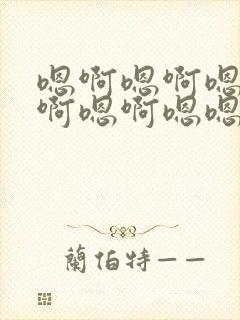 嗯啊嗯啊嗯
啊嗯啊嗯嗯
蘭伯特——